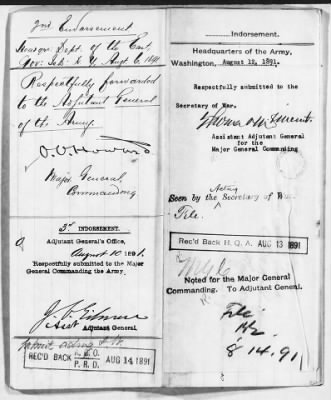 2nd Endorsement
Dept. of the East,
Gov. Isl. N. Y. Aug 6, 1891
Respectfully forwarded
to the Adjutant General
of the Army.
O. O. Howard
Major General
Commanding
3d INDORSEMENT.
Adjutant General's Office,
August 10 1891.
Respectfully submitted to the Major
General Commanding the Army.
Asst Adjutant General.
REC'D BACK A. G. O. AUG 14 1891
P. R. D.
Indorsement.
Headquarters of the Army,
Washington, August 12, 1891.
Respectfully submitted to the
Secretary of War.
Assistant Adjutant General
for the
Major General Commanding
Acting
Seen by the Secretary of War.
File.
REC'D BACK H. Q. A. AUG 13 1891
Noted for the Major General
Commanding. To Adjutant General.
File
8 14. 91